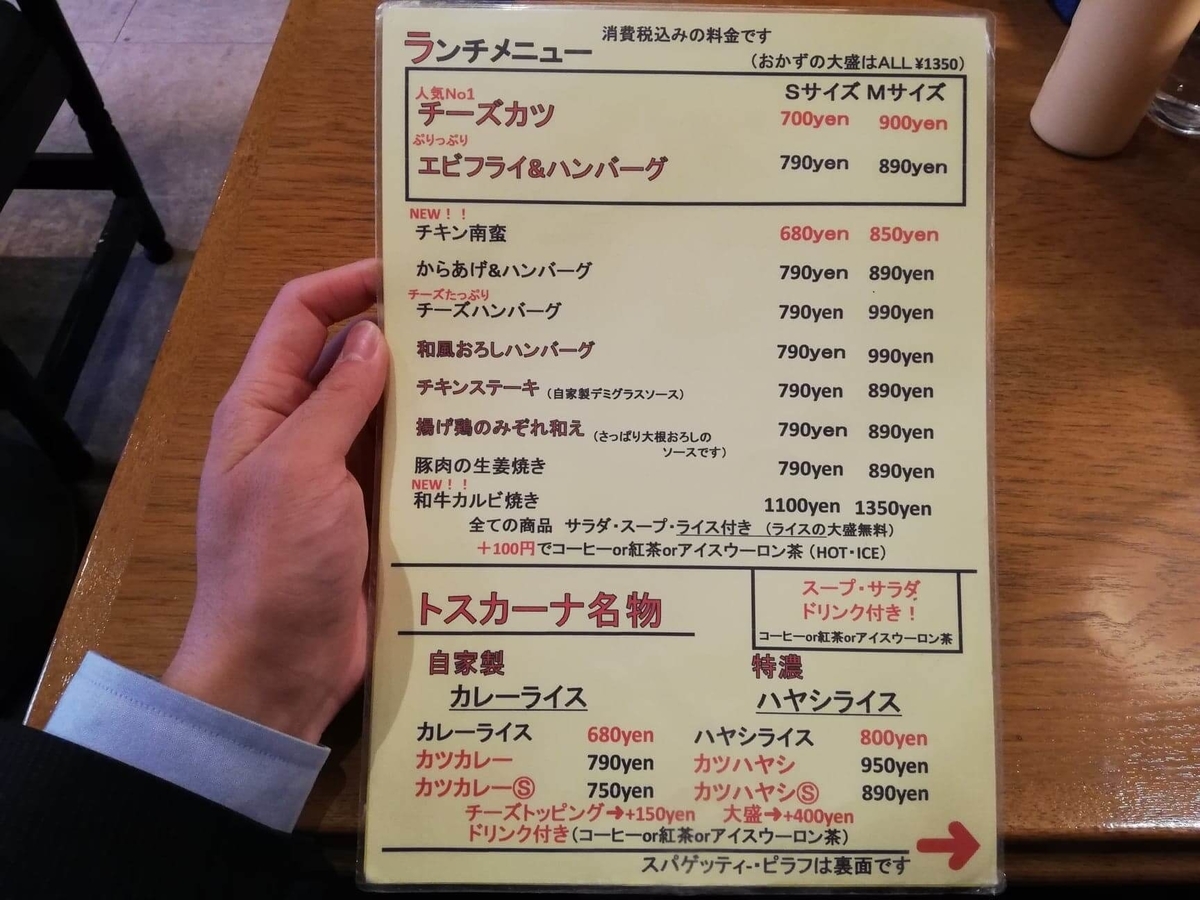 ランチメニュー 消費税込みの料金です
（おかずの大盛はALL ¥1350）
Sサイズ Mサイズ
人気No1
チーズカツ 700yen 900yen
ぷりっぷり
エビフライ&ハンバーグ 790yen 890yen
NEW！！
チキン南蛮 680yen 850yen
からあげ&ハンバーグ 790yen 890yen
チーズたっぷり
チーズハンバーグ 790yen 990yen
和風おろしハンバーグ 790yen 990yen
チキンステーキ（自家製デミグラスソース） 790yen 890yen
揚げ鶏のみぞれ和え（さっぱり大根おろしの 790yen 890yen
ソースです）
豚肉の生姜焼き 790yen 890yen
NEW！！
和牛カルビ焼き 1100yen 1350yen
全ての商品 サラダ・スープ・ライス付き （ライスの大盛無料）
＋100円でコーヒーor紅茶orアイスウーロン茶（HOT・ICE）
トスカーナ名物
スープ・サラダ
ドリンク付き！
コーヒーor紅茶orアイスウーロン茶
自家製 特濃
カレーライス ハヤシライス
カレーライス 680yen ハヤシライス 800yen
カツカレー 790yen カツハヤシ 950yen
カツカレーⓈ 750yen カツハヤシⓈ 890yen
チーズトッピング➜+150yen 大盛➜+400yen
ドリンク付き（コーヒーor紅茶orアイスウーロン茶）
スパゲッティ-・ピラフは裏面です